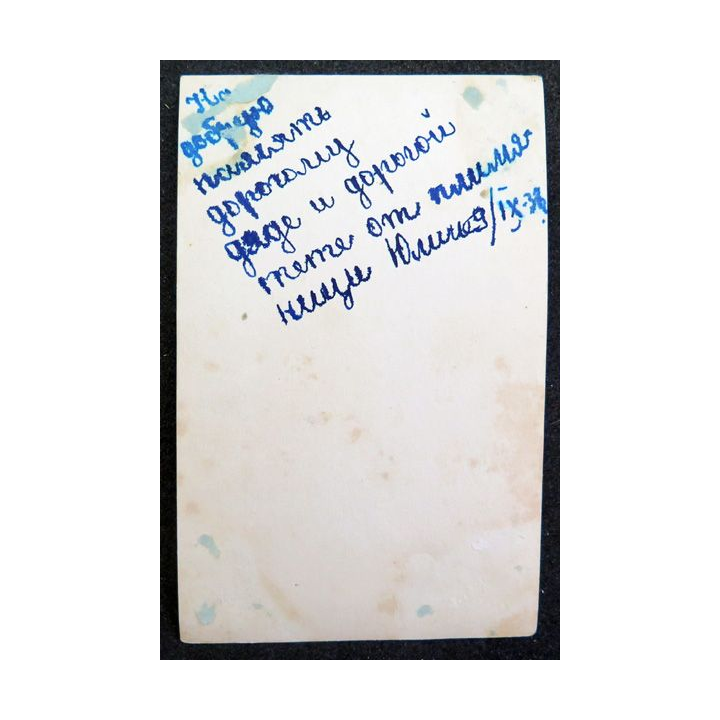 На
добрую
память
дорогому
дяде и дорогой
тете от племя-
ницы Юлички /IX-38